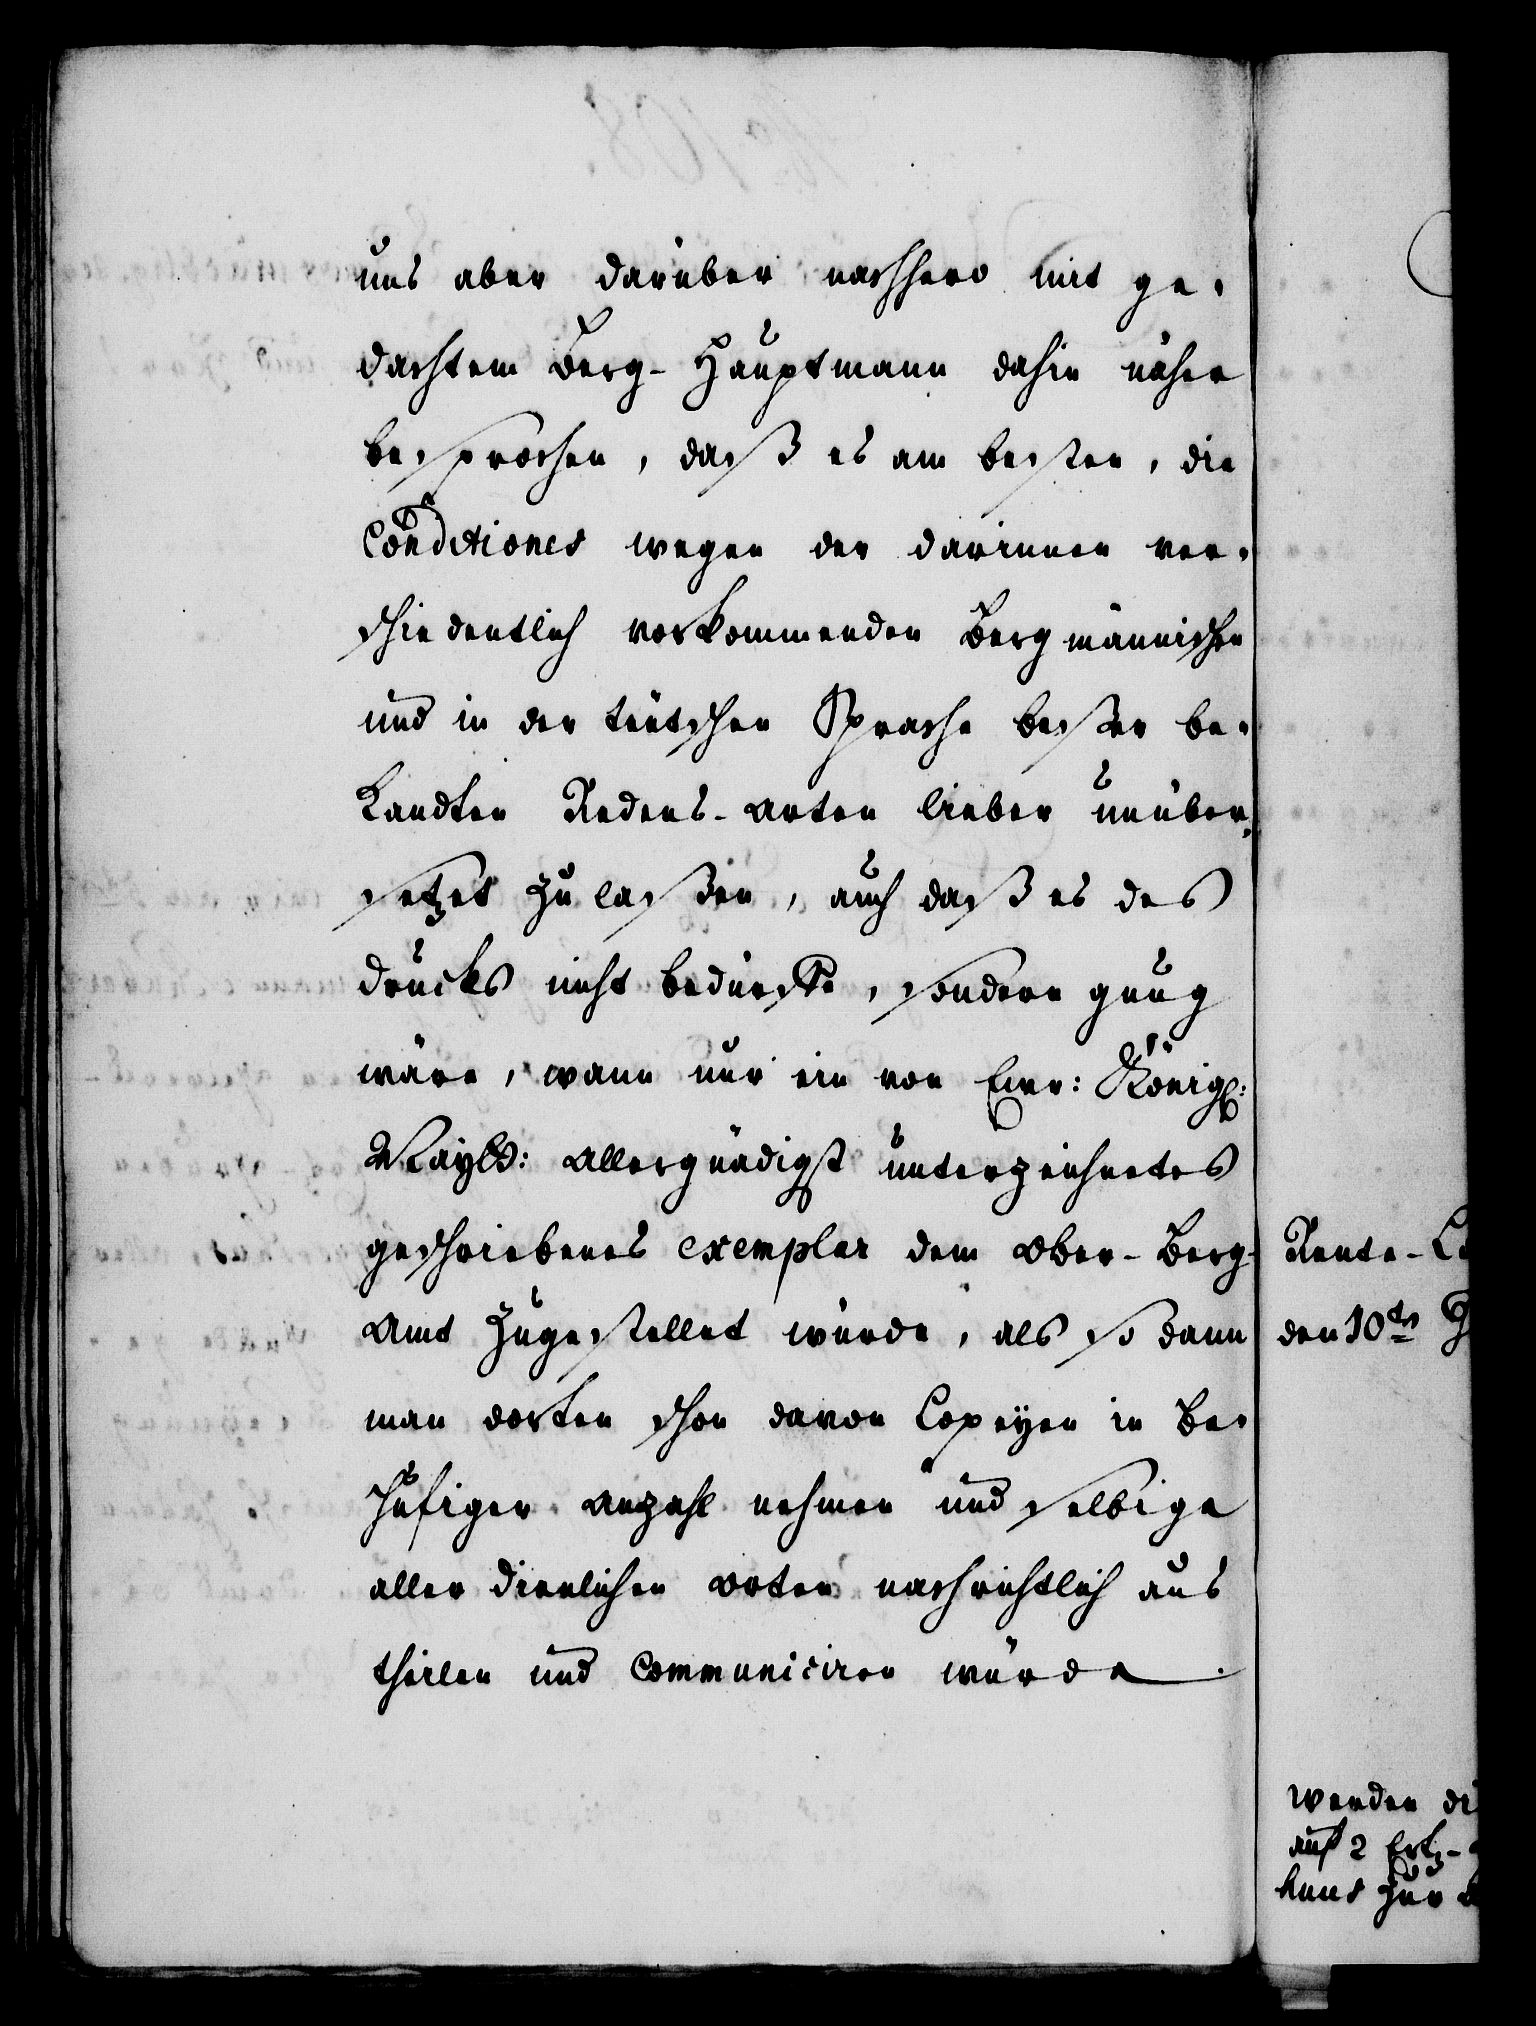 uns aber darüber nachhero mit ge-
dachtem Berg-Hauptmann dahin näher
besprochen, daß es am besten, die
Conditiones wegen der darinnen ver-
schiedentlich vorkommenden Bergmännischen
und in der teutschen Sprache besser be-
kandten Redens-arten lieber unüber-
setzet zu laßen, auch daß es des
drucks nicht bedürffte, sondern gnug
wäre, wann nur ein von Ewr: Königl:
Mayts: allergnädigst unterzeichnetes
geschriebenes exemplar dem Ober-Berg-
Amt zugestellet würde, als so dann
man dorten schon davon Copeyen in Be-
hufiger Anzahl nehmen und selbige
aller dienlichen Orten nachrichtlich aus
theilen und Communiciren würde.
Rente-
den 10ten
werden
auf 2 Ertz-
zur